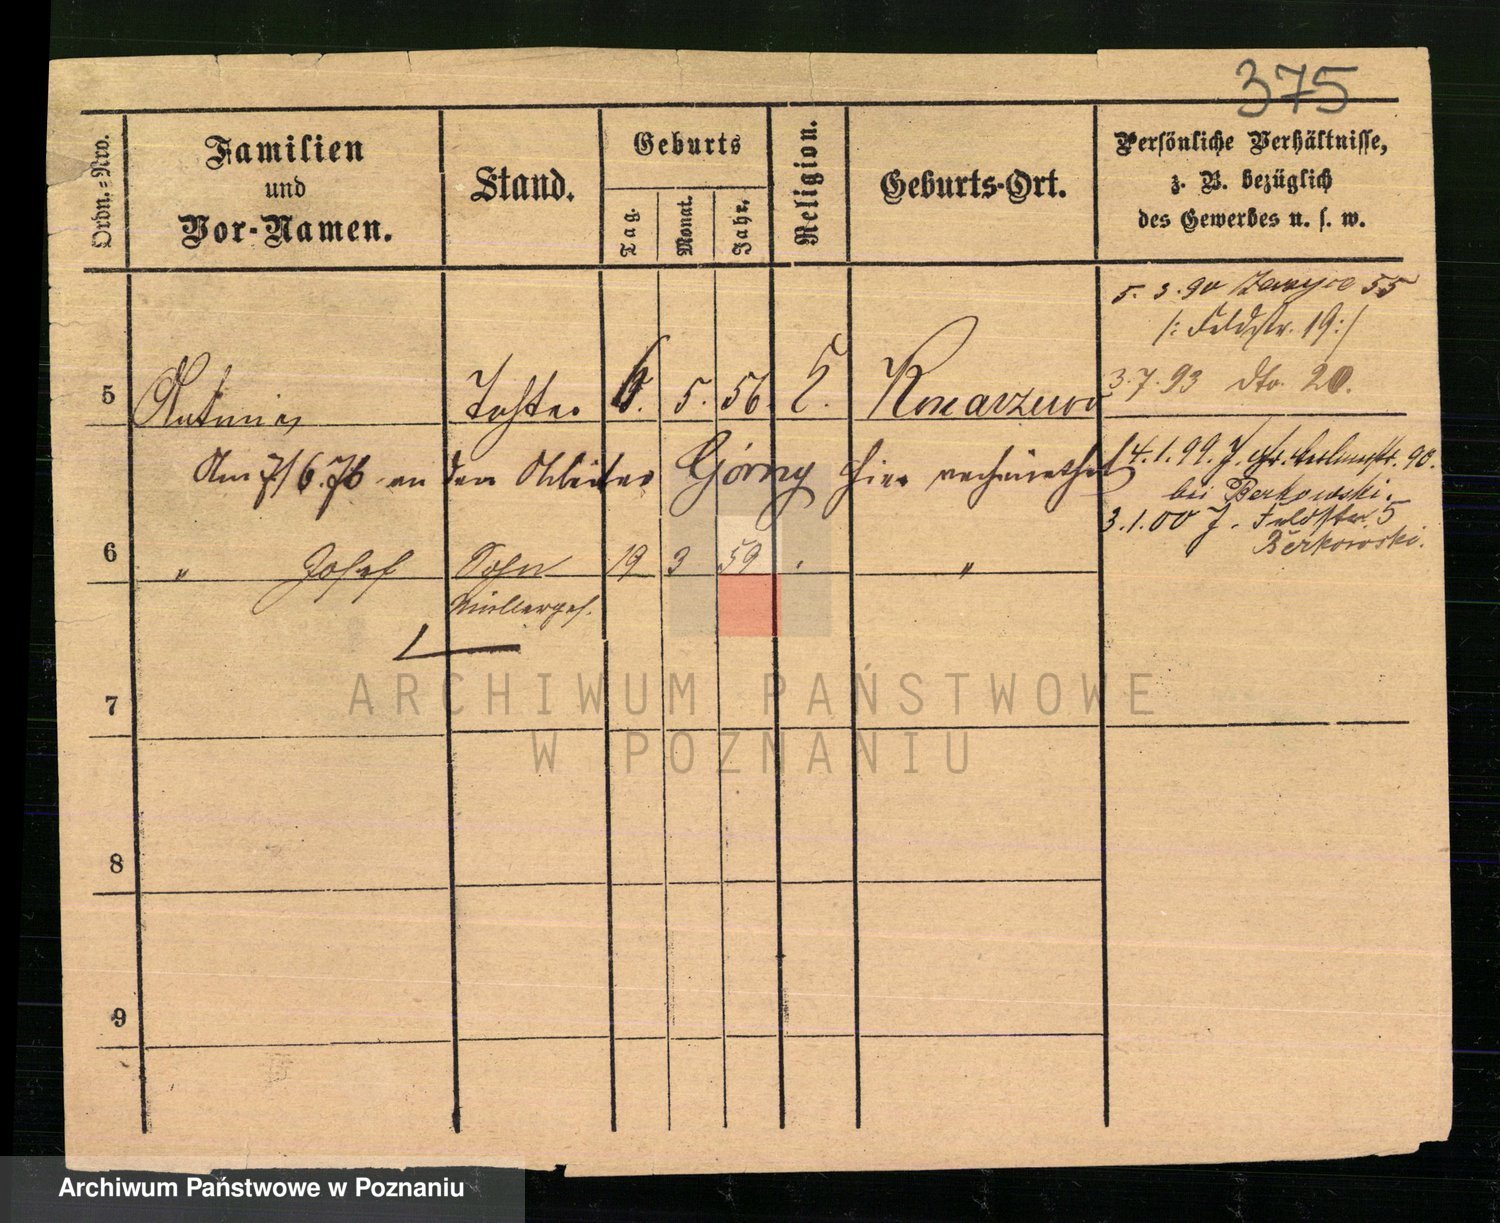 375
Ordn.=Nro.
Familien
und
Vor-Namen.
Stand.
Geburts
Tag.
Monat.
Jahr.
Religion.
Geburts-Ort.
Persönliche Verhältnisse,
z. B. bezüglich
des Gewerbes u. s. w.
5. 3. 90 55
/: Feldstr. 19 :/
3. 7. 93 dto. 20.
5 Antonie Tochter 6. 5. 56. Konarzewo
Am 7/6. 76 an den Arbeiter Górny hier verheirathet
4. 1. 99. J. 90.
bei Berkowski.
3. 1. 00 J. Feldstr. 5
Berkowski.
6 " Josef Sohn 19 3 59 "
Müllerges.
7
8
9
ARCHIWUM PAŃSTWOWE
W POZNANIU
Archiwum Państwowe w Poznaniu